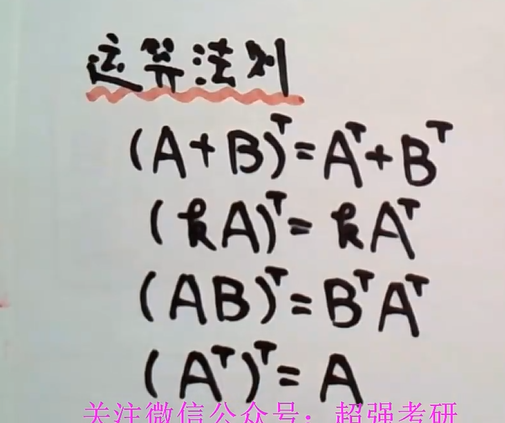 运算法则
(A+B)ᵀ=Aᵀ+Bᵀ
(kA)ᵀ=kAᵀ
(AB)ᵀ=BᵀAᵀ
(Aᵀ)ᵀ=A
关注微信公众号：超强考研